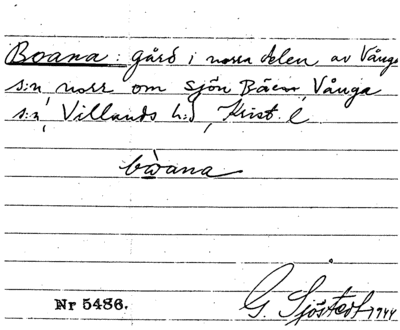 Boana: gård i norra delen av Vånga
s:n, norr om sjön Bäen, Vånga
s:n, Villands h:d, Krist. l
bòana
Nr 5486.
G. Sjöstedt 1944